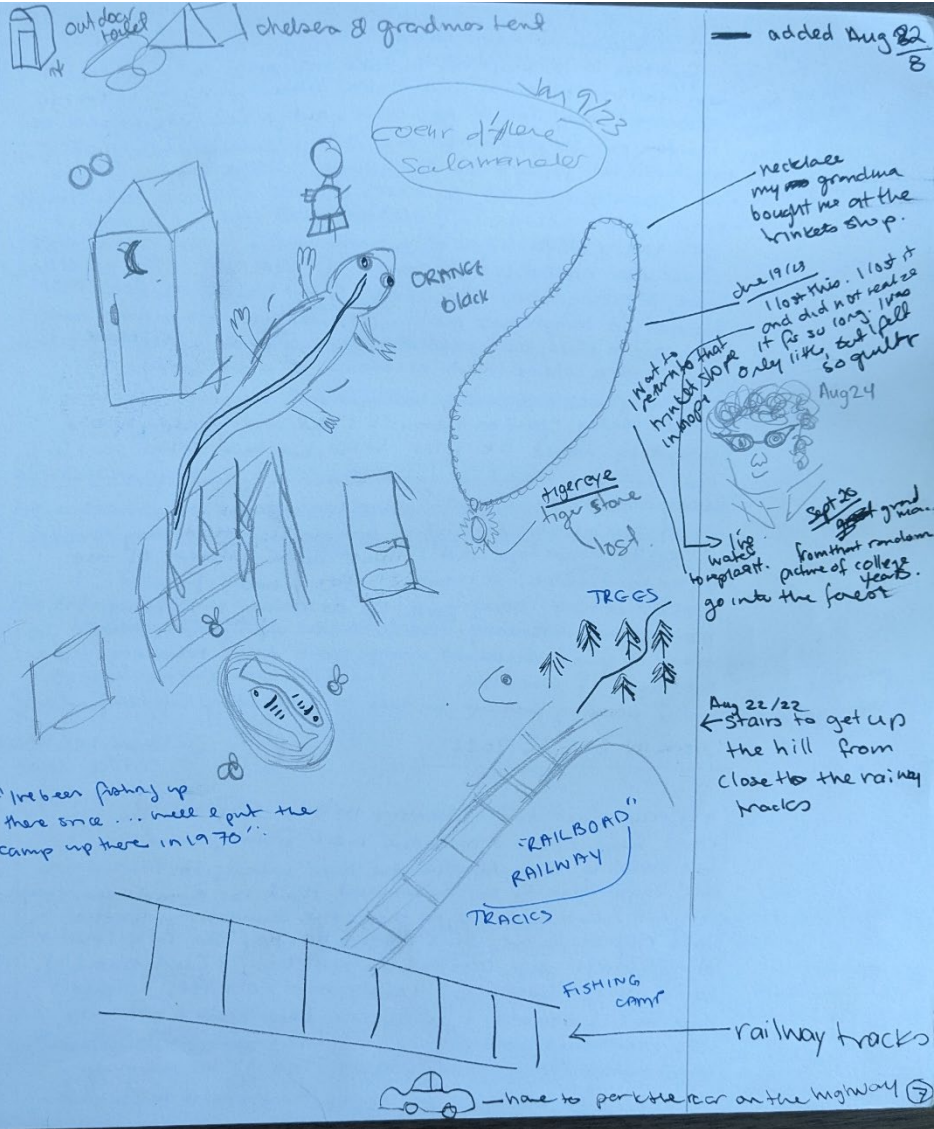 outdoor toilet
chelsea & grandmas tent
added Aug 22
8
Jan 9/23
Coeur d'Alene
Salamander
necklace
my grandma
bought me at the
trinkets shop.
ORANGE
black
June 19/23
I lost this. I lost it
and did not realize
it for so long. I was
only little, but I felt
so guilty
I want to
return to that
trinket shop
in hopes
to replace it.
Aug 24
tigereye
tiger stone
lost.
Sept 20
grand
ma
from that random
picture of college
years.
go into the forest
TREES
Aug 22/22
stairs to get up
the hill from
close to the railway
tracks
"Ive been fishing up
there since ... well I put the
camp up there in 1970"
"RAILROAD"
RAILWAY
TRACKS
FISHING
CAMP
railway tracks
have to park the car on the highway 7